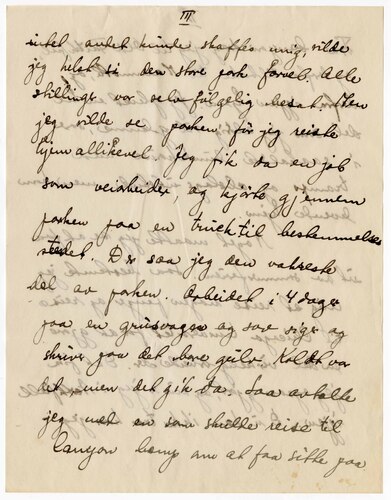 III
intet andet kunde skaffes mig, vilde
jeg helst si den store park farvel. Alle
stillinger var selvfølgelig besat, men
jeg vilde se parken før jeg reiste
hjem allikevel. Jeg fik da en job
som veiarbeider, og kjørte gjennem
parken paa en truck til bestemmelses
stedet. Da saa jeg den vakreste
del av parken. Arbeidet i 4 dager
paa en grusvogn og sov
paa det bare gulv. Koldt var
det, men det gik da. Saa avtalte
jeg med en som skulde reise til
Canyon camp om at faa sitte paa